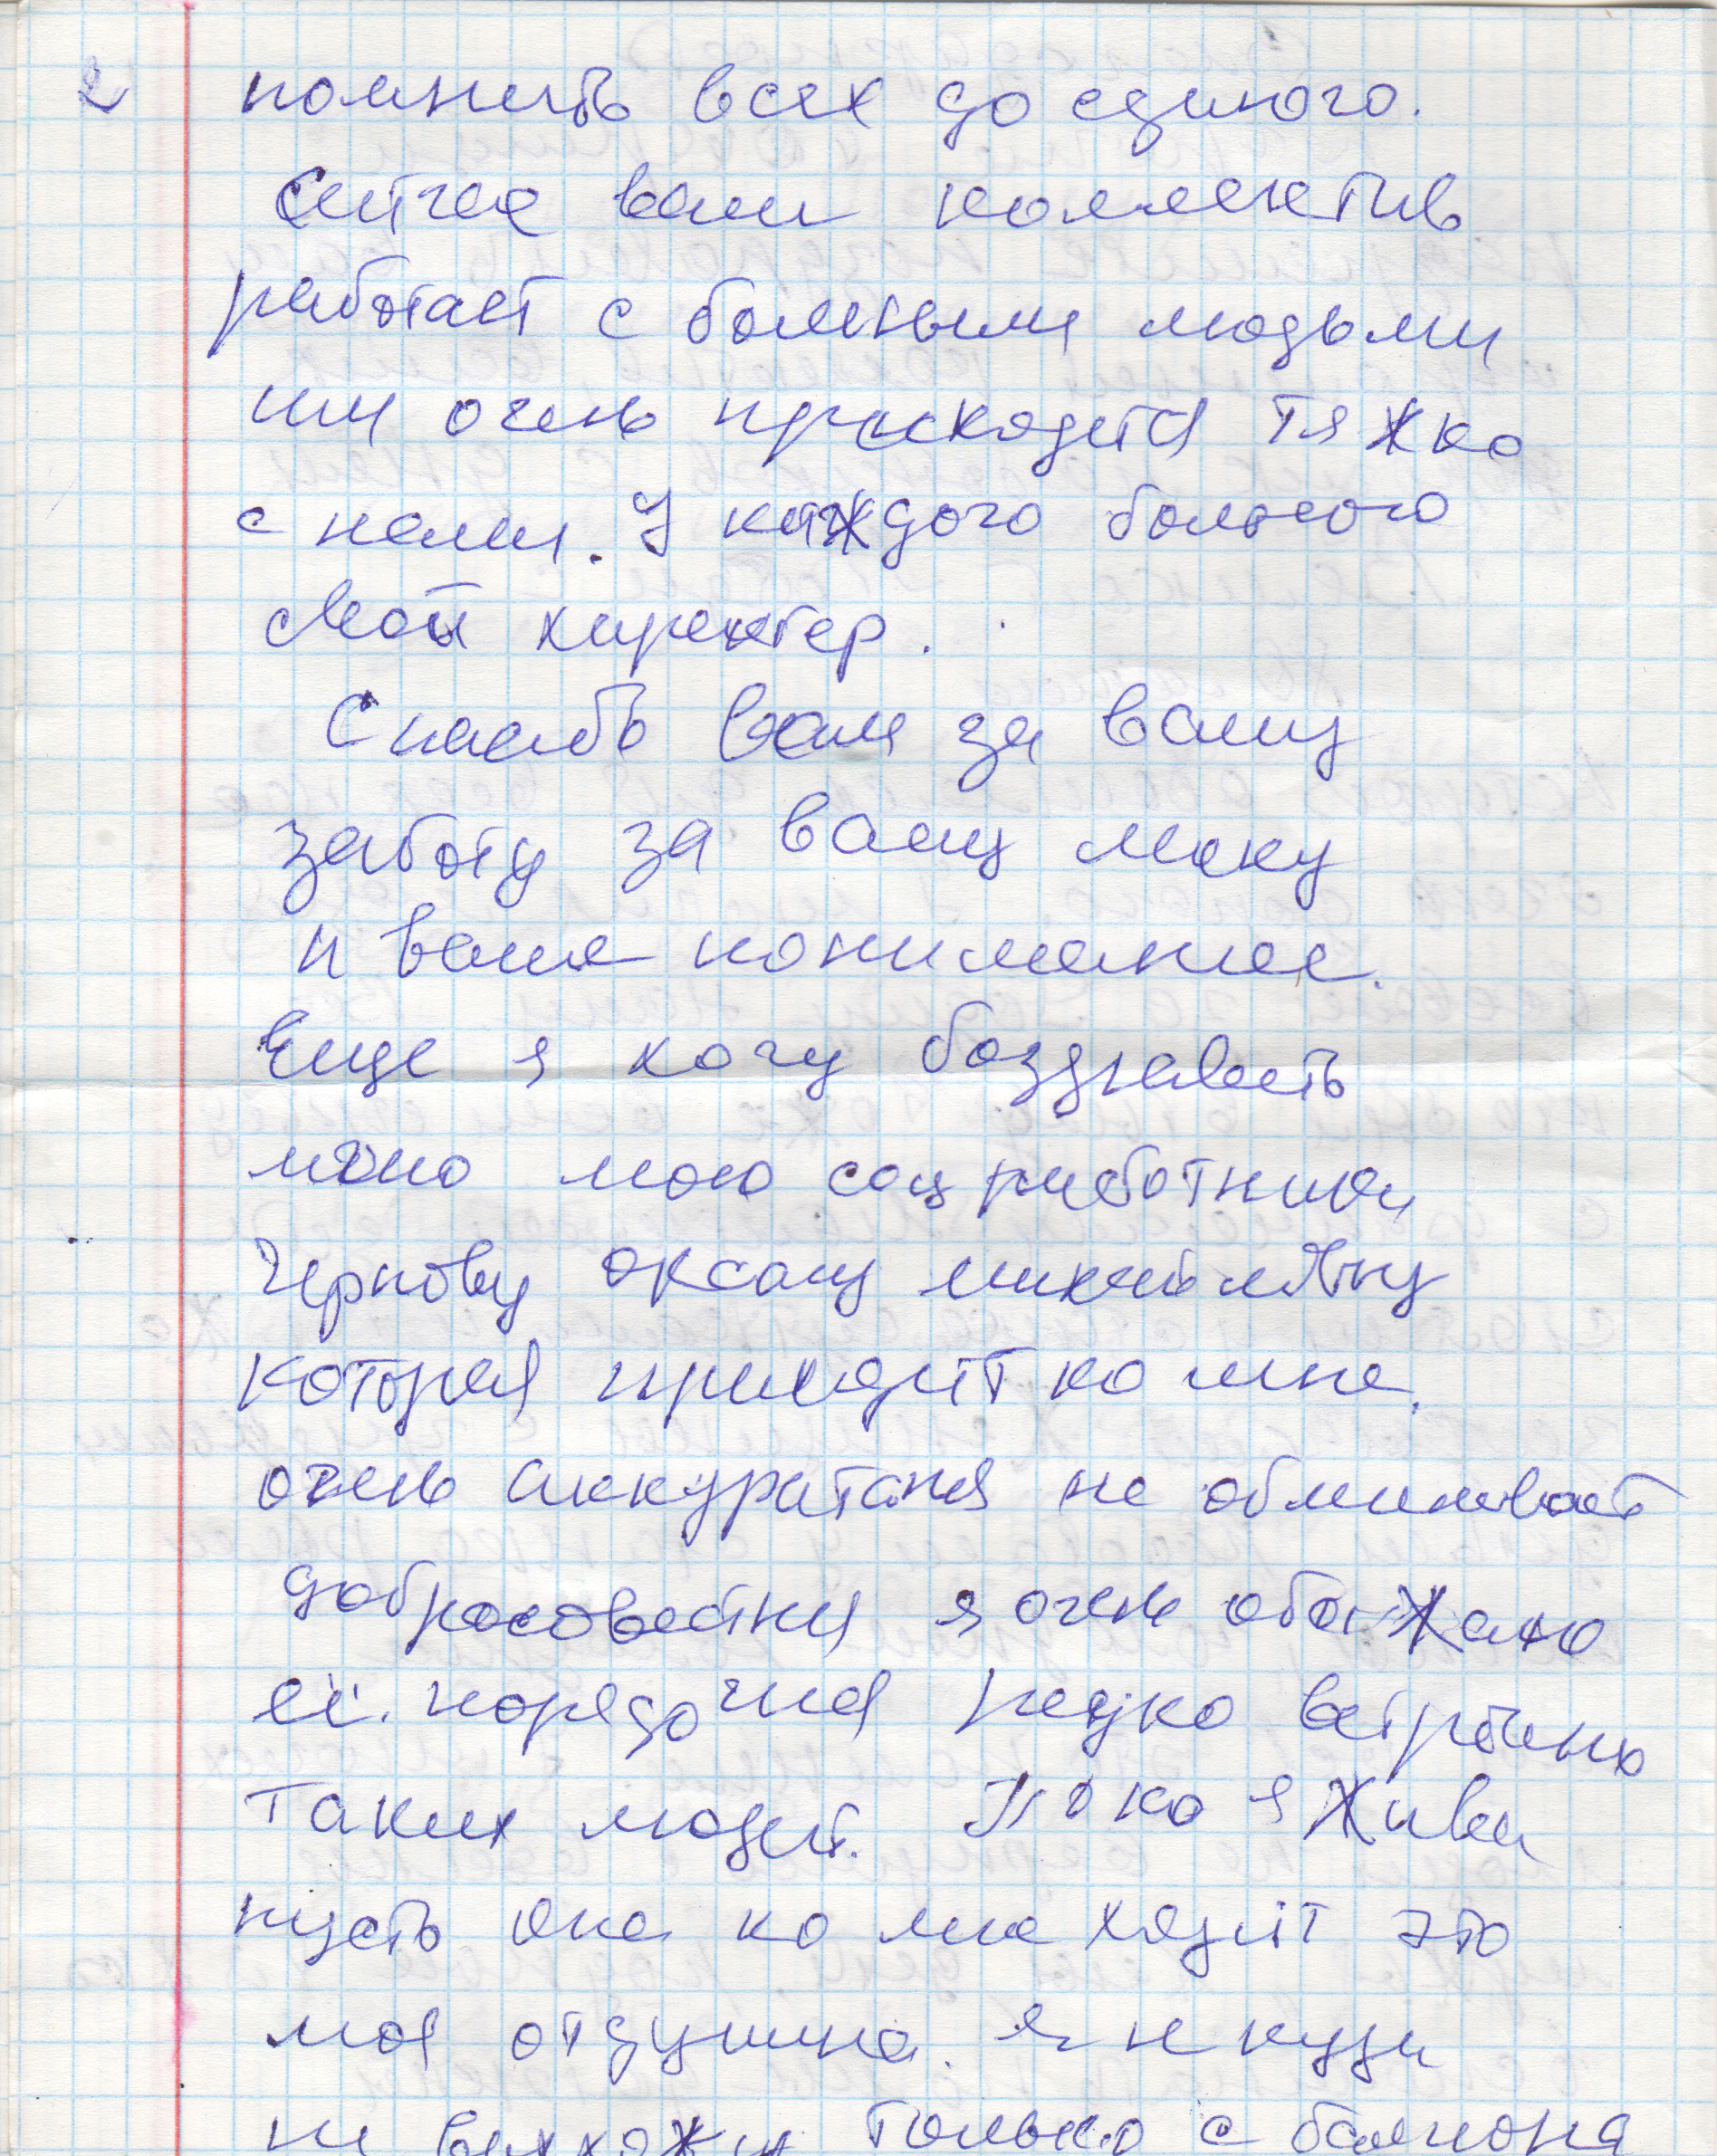 2 помнить всех до единого.
Сейчас ваш коллектив
работает с больными людьми
им очень приходится тяжко
с нами. У каждого больного
свой характер.
Спасибо вам за вашу
заботу за вашу ласку
и ваше понимание.
Еще я хочу
мою соц работника
Чернову Оксану
которая приходит ко мне.
очень аккуратаня не обманивает
добросовестная я очень обажаю
её. порядочная редко встречаю
таких людей. Пока я живи
пусть она ко мне ходит это
моя отдушина. я никуда
не выхожу только с балкона